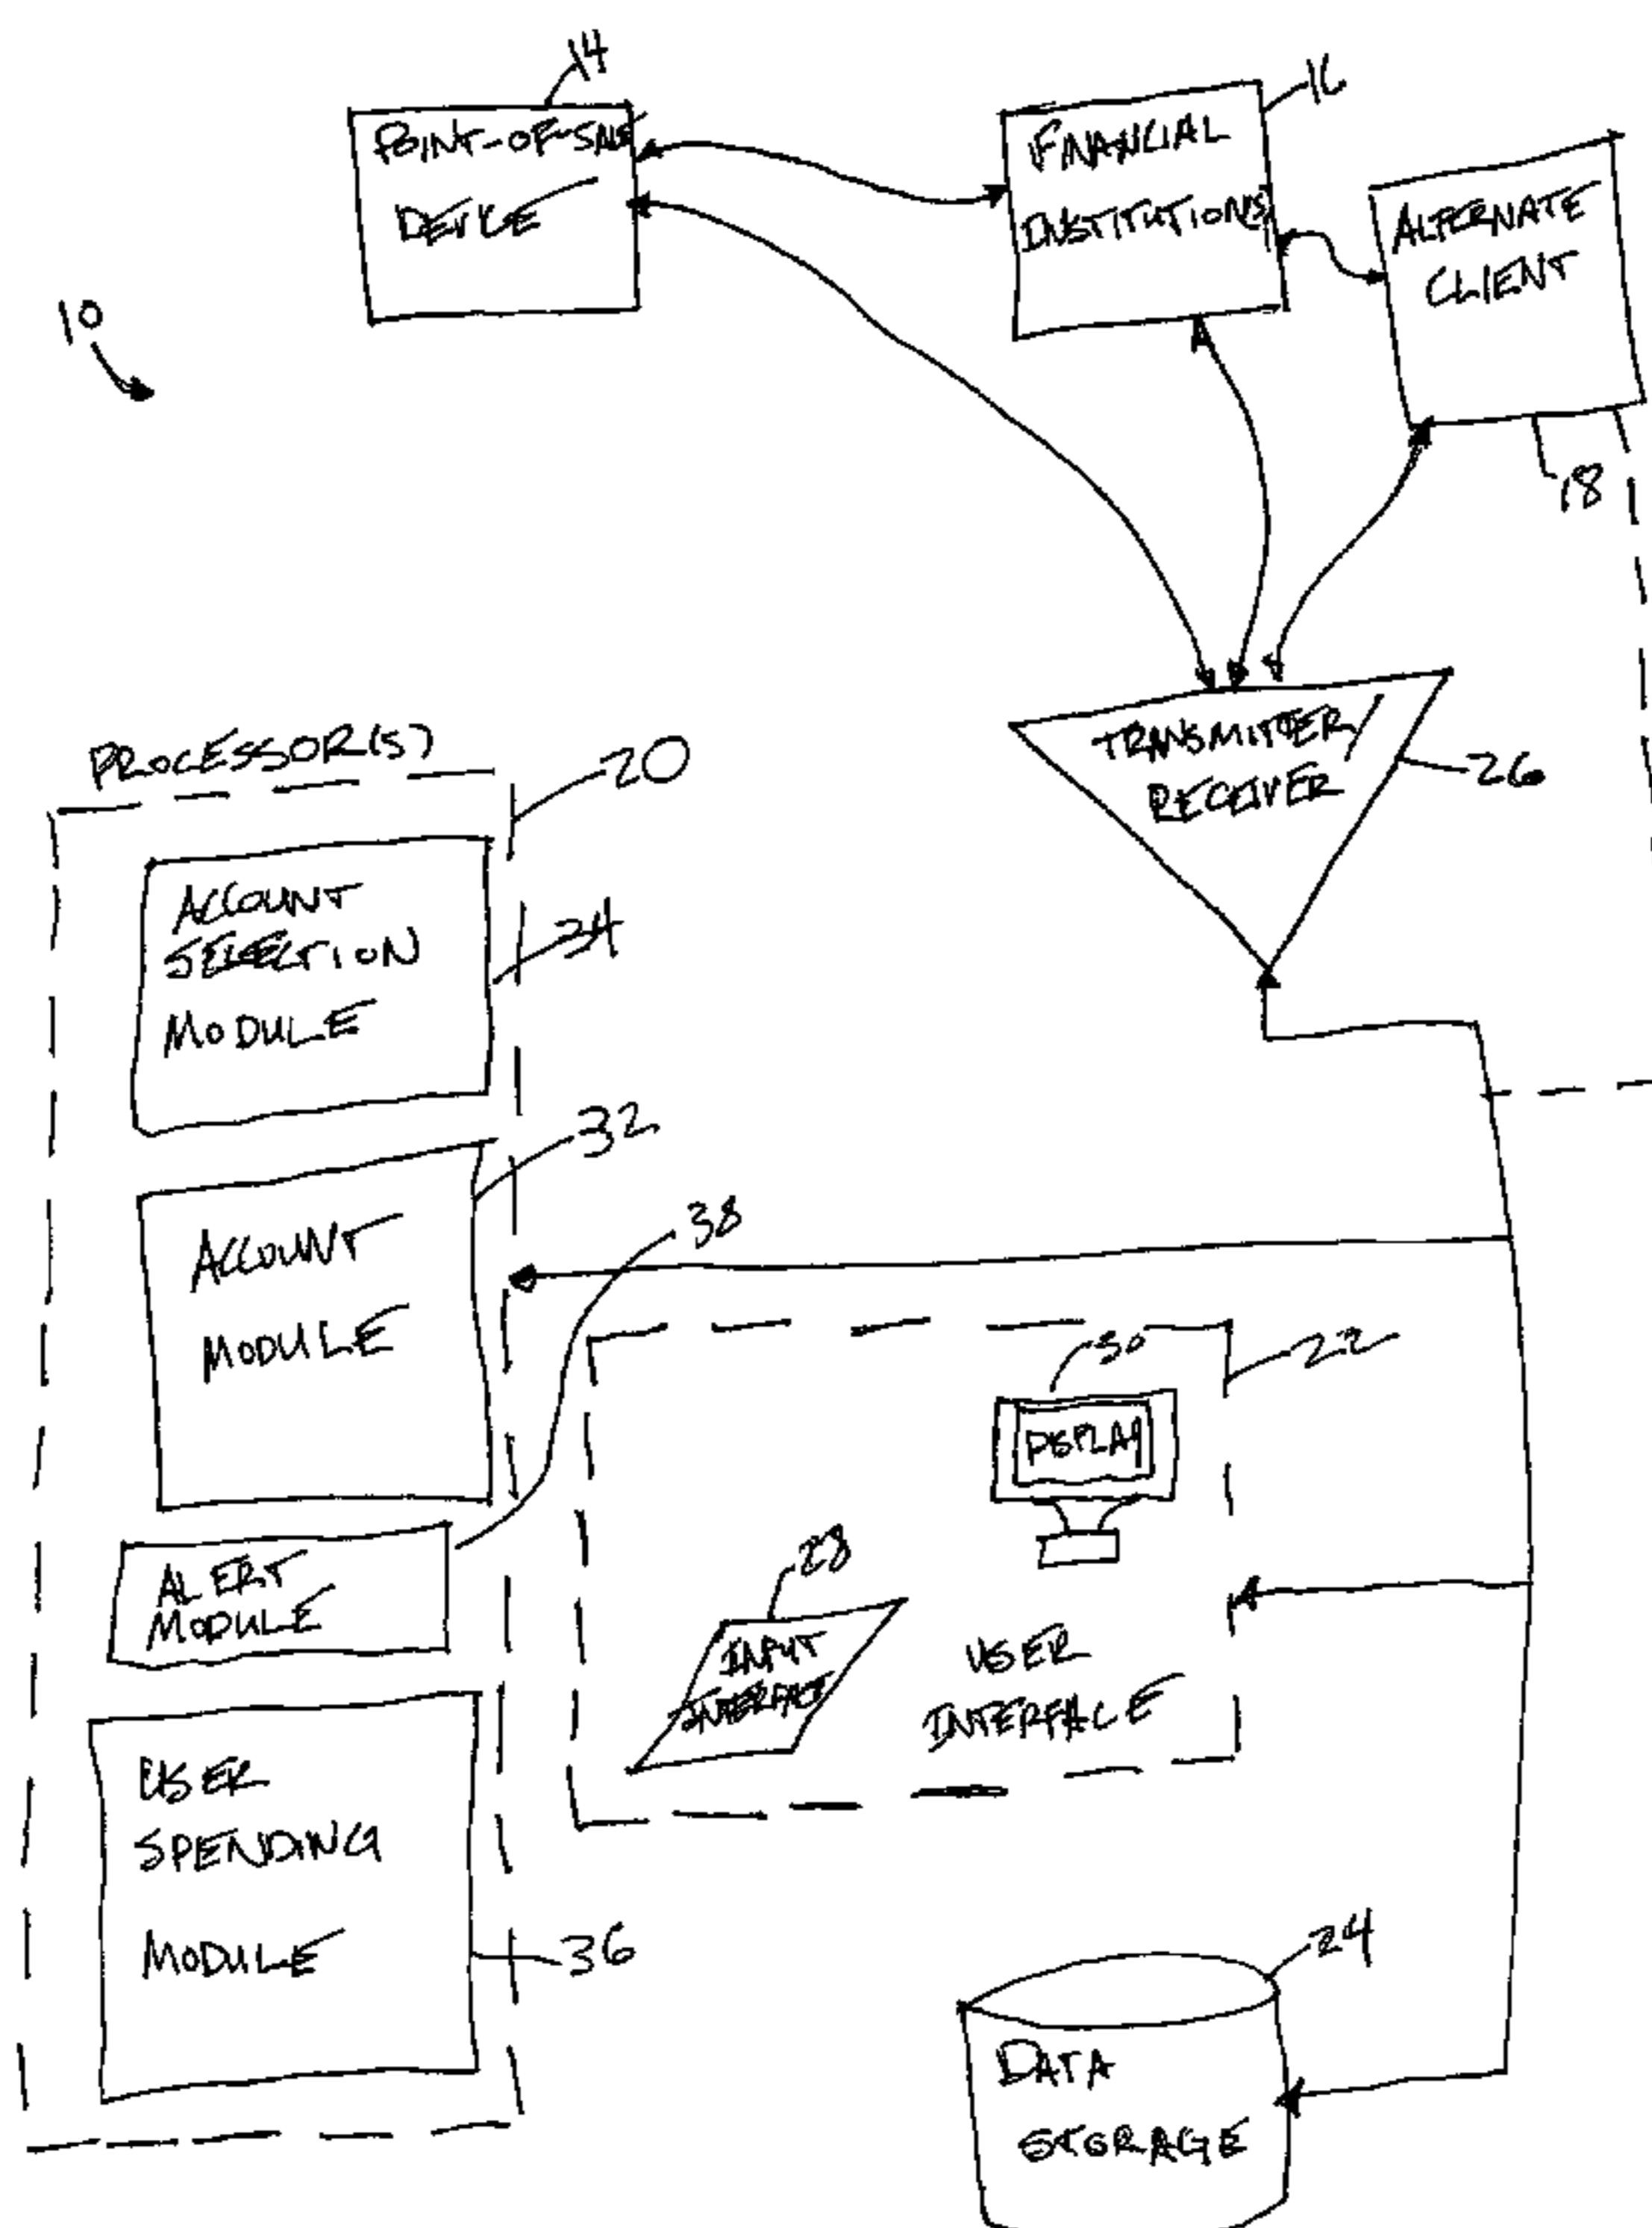 14
POINT-OF-SALE
DEVICE
16
FINANCIAL
INSTITUTIONS
ALTERNATE
CLIENT
18
10
TRANSMITTER/
RECEIVER
26
PROCESSOR(S)
20
ACCOUNT
SELECTION
MODULE
34
ACCOUNT
MODULE
32
38
ALERT
MODULE
USER
SPENDING
MODULE
36
30
DISPLAY
22
28
INPUT
INTERFACE
USER
INTERFACE
24
DATA
STORAGE